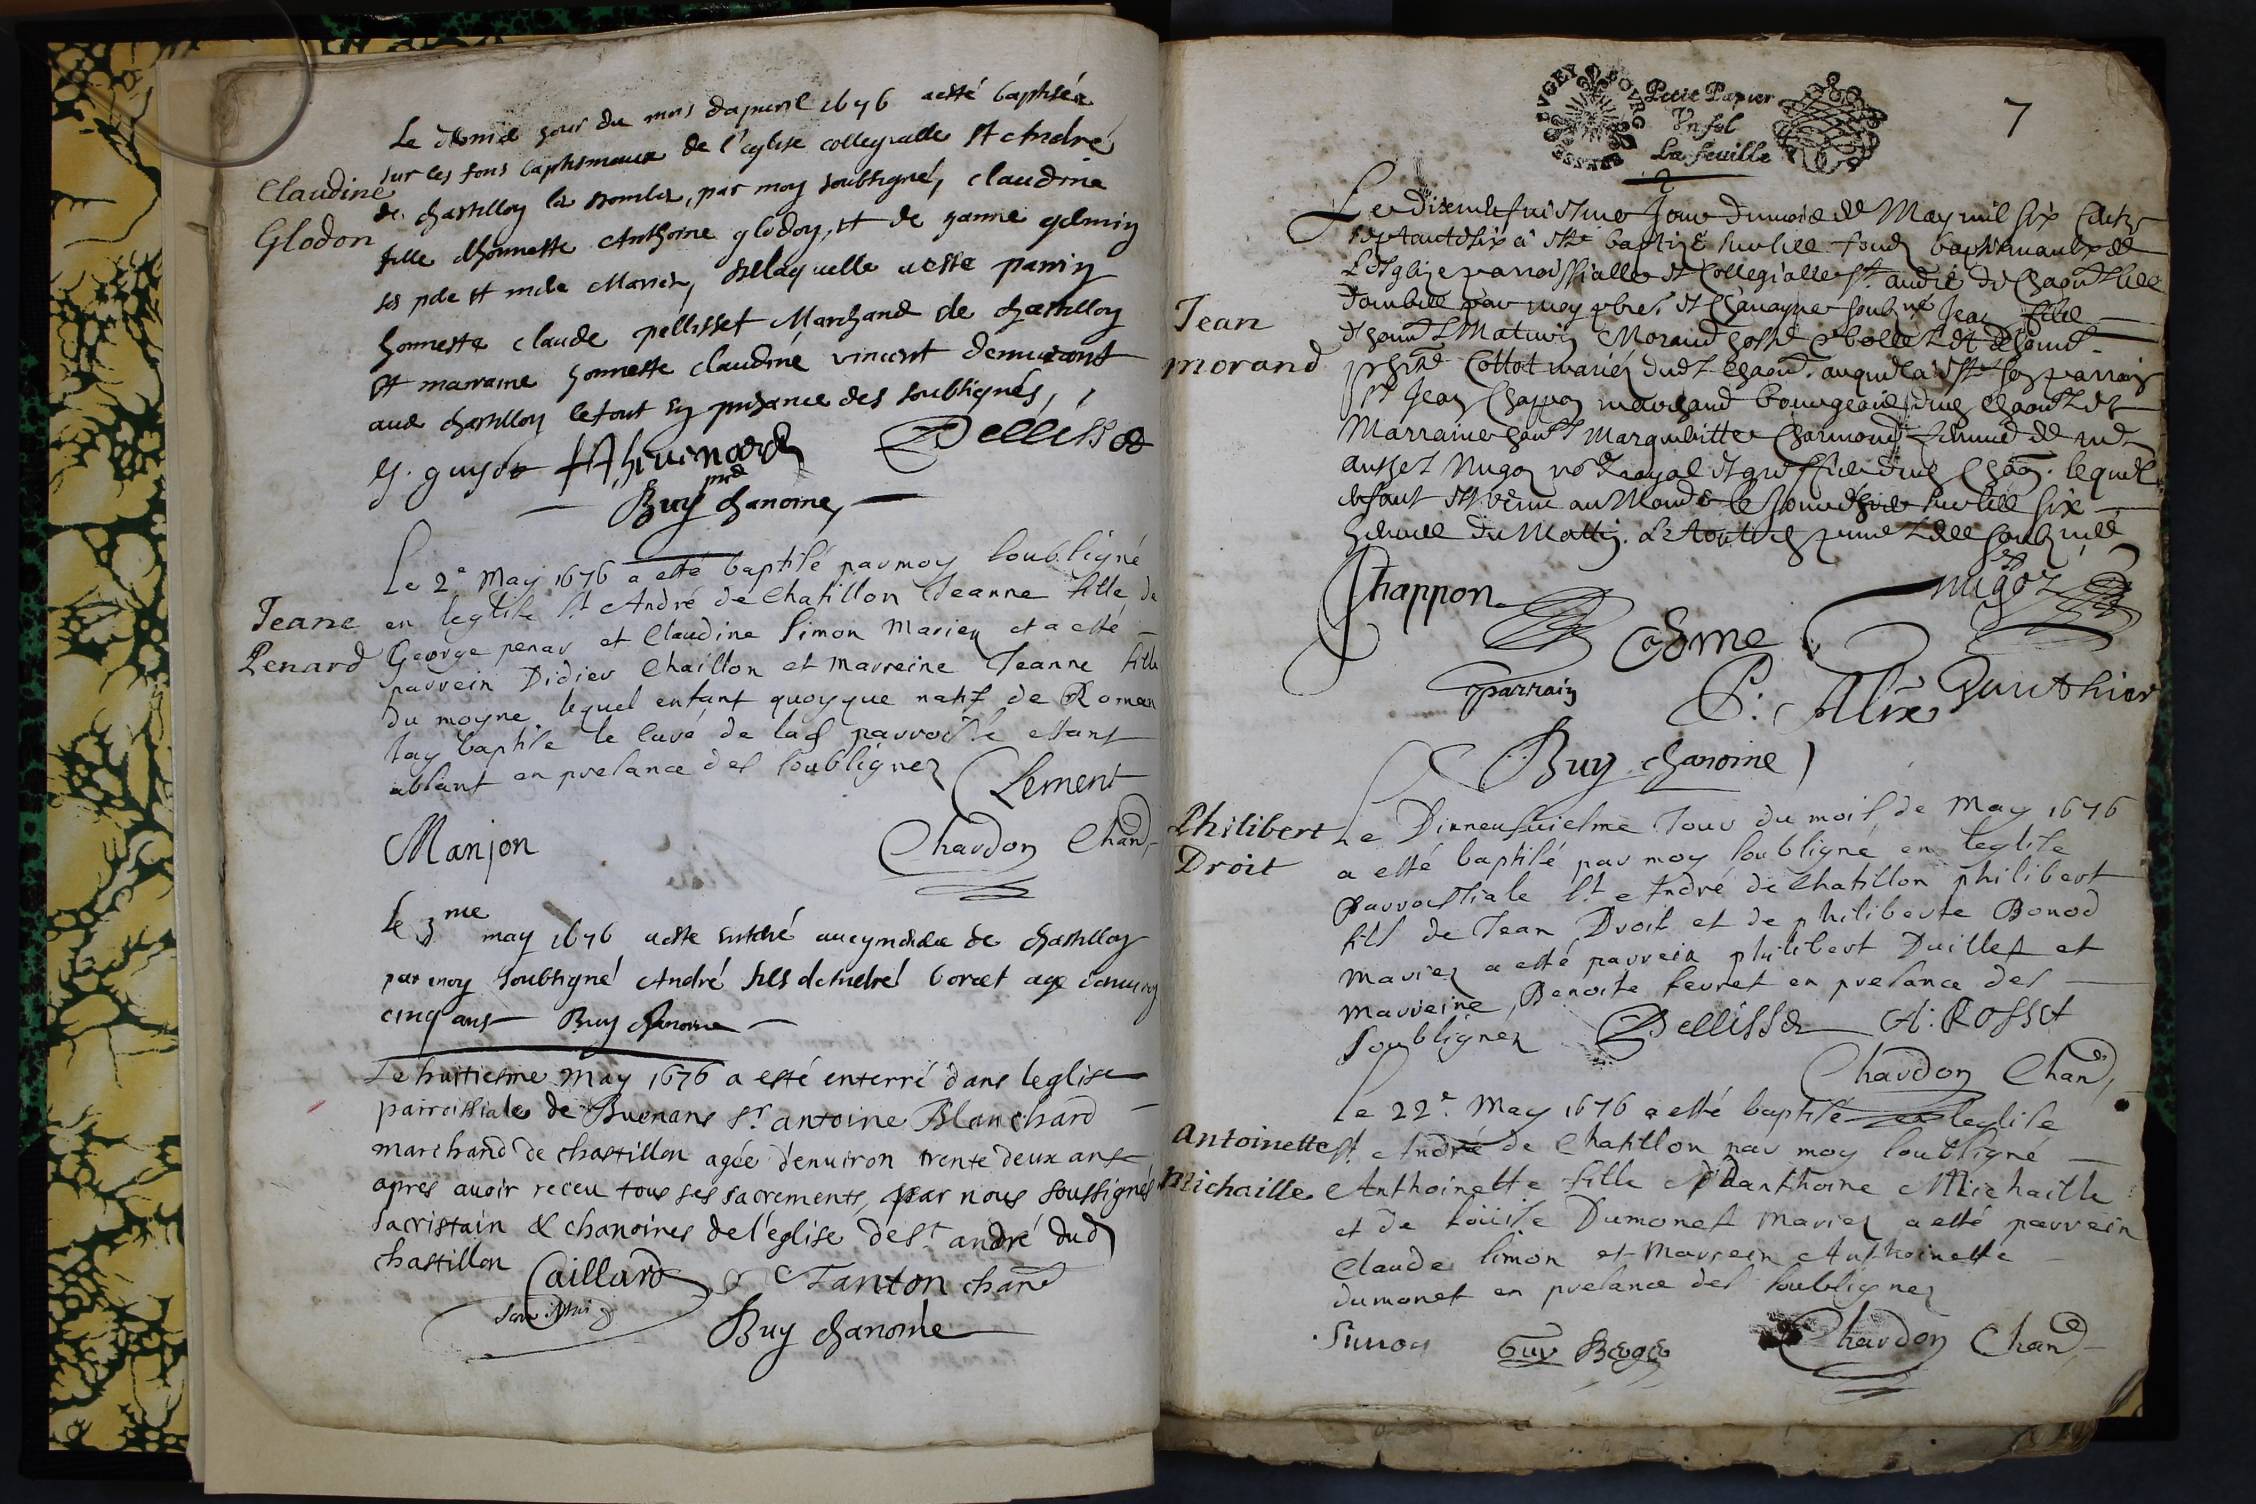 Le jour du mois dapuril 1676 aesté baptisée
sur les fons baptismaux de l'eglise collegialle st André
Claudine
Glodon
de chastillon les dombes, par moy soubsigné, claudine
fille dhonneste Anthoine glodon, et de janne
ses pere et mere Mariez, delaquelle aeste parrin
honneste claude pellisset Marchand de chastillon
et marraine honneste claudine vincent demeurant
aud chastillon le tout en presence des soubsignés,
g. guyot Thevenard Pellisset
Buy chanoine
Le 2e May 1676 a esté baptisé par moy soubsigné
Jeane
Penard
en leglise st André de Chatillon Jeanne fille de
George penar et Claudine Simon Mariez et a esté
parrein Didier Chaillon et marreine Jeanne fille
du moyne lequel enfant quoyque natif de Roman
jay baptisé le curé de lad parroisse estant
absant en presance des soubsignez Clement
Manjon Chardon Chane
Le 3me may 1676 aeste enterré au cymetiere de chastillon
par moy soubsigné André fils dAndré boret age denuiron
cinq ans Buy chanoine
Le huitiesme May 1676 a esté enterré dans leglise
parroissiale de Buenans sr. antoine Blanchard
marchand de chastillon agée d'enuiron trente deux ans
apres auoir receu tous ses sacrements, par nous soussignés
sacristain & chanoines de l'église de st andré dud
chastillon Caillard Tanton chane
Buy chanoine
BOURG BUGEY BRESSE
Petit Papier
Un sol
La feuille
7
Le dixneufuiesme Jour dumois de May mil six cents
septantesix a este baptizé sur les fonds baptismaulx de
Lesglize parroissialle et Collegialle st. andré de Chaon les
Jean
morand
dombes par moy pbre. et Chanoyne soubne Jean filz
dhonest Maturin Morand hoste et de honest
Cottot mariés dudt chaon. auquel a este son parrain
sr Jean Chappon marchand bourgeois dud chaon et
Marraine honest Margueritte Charmond femme de me
Nugoz nore royal et greffier dud Chaon. lequel
enfant est venu au Monde le Jour dhier sur les six
heures du Mattin. Le tout en punce des soubznés
Chappon nugoz
Cosme
parrain P. Alix Gauthier
Buy chanoine
Philibert
Droit
Le Dixneufuiesme Jour du mois de May 1676
a esté baptisé par moy soubsigné en leglise
Parroissiale st André de Chatillon philibert
fils de Jean Droit et de philiberte Bonod
mariez a esté parrein philibert Duillet et
marreine Benoite feuret en presance des
soubsignez Pellisset A. Rosset
Chardon Chane
Le 22e. May 1676 a esté baptisé en leglise
Antoinette
Michaille
st. André de Chatillon par moy soubsigné
Anthoinette fille danthoine Michaille
et de loüise Dumonet Mariez a esté parrein
Claude simon et Marrein Anthoinette
dumonet en presance des soubsignez
Simon Guy Chardon Chane